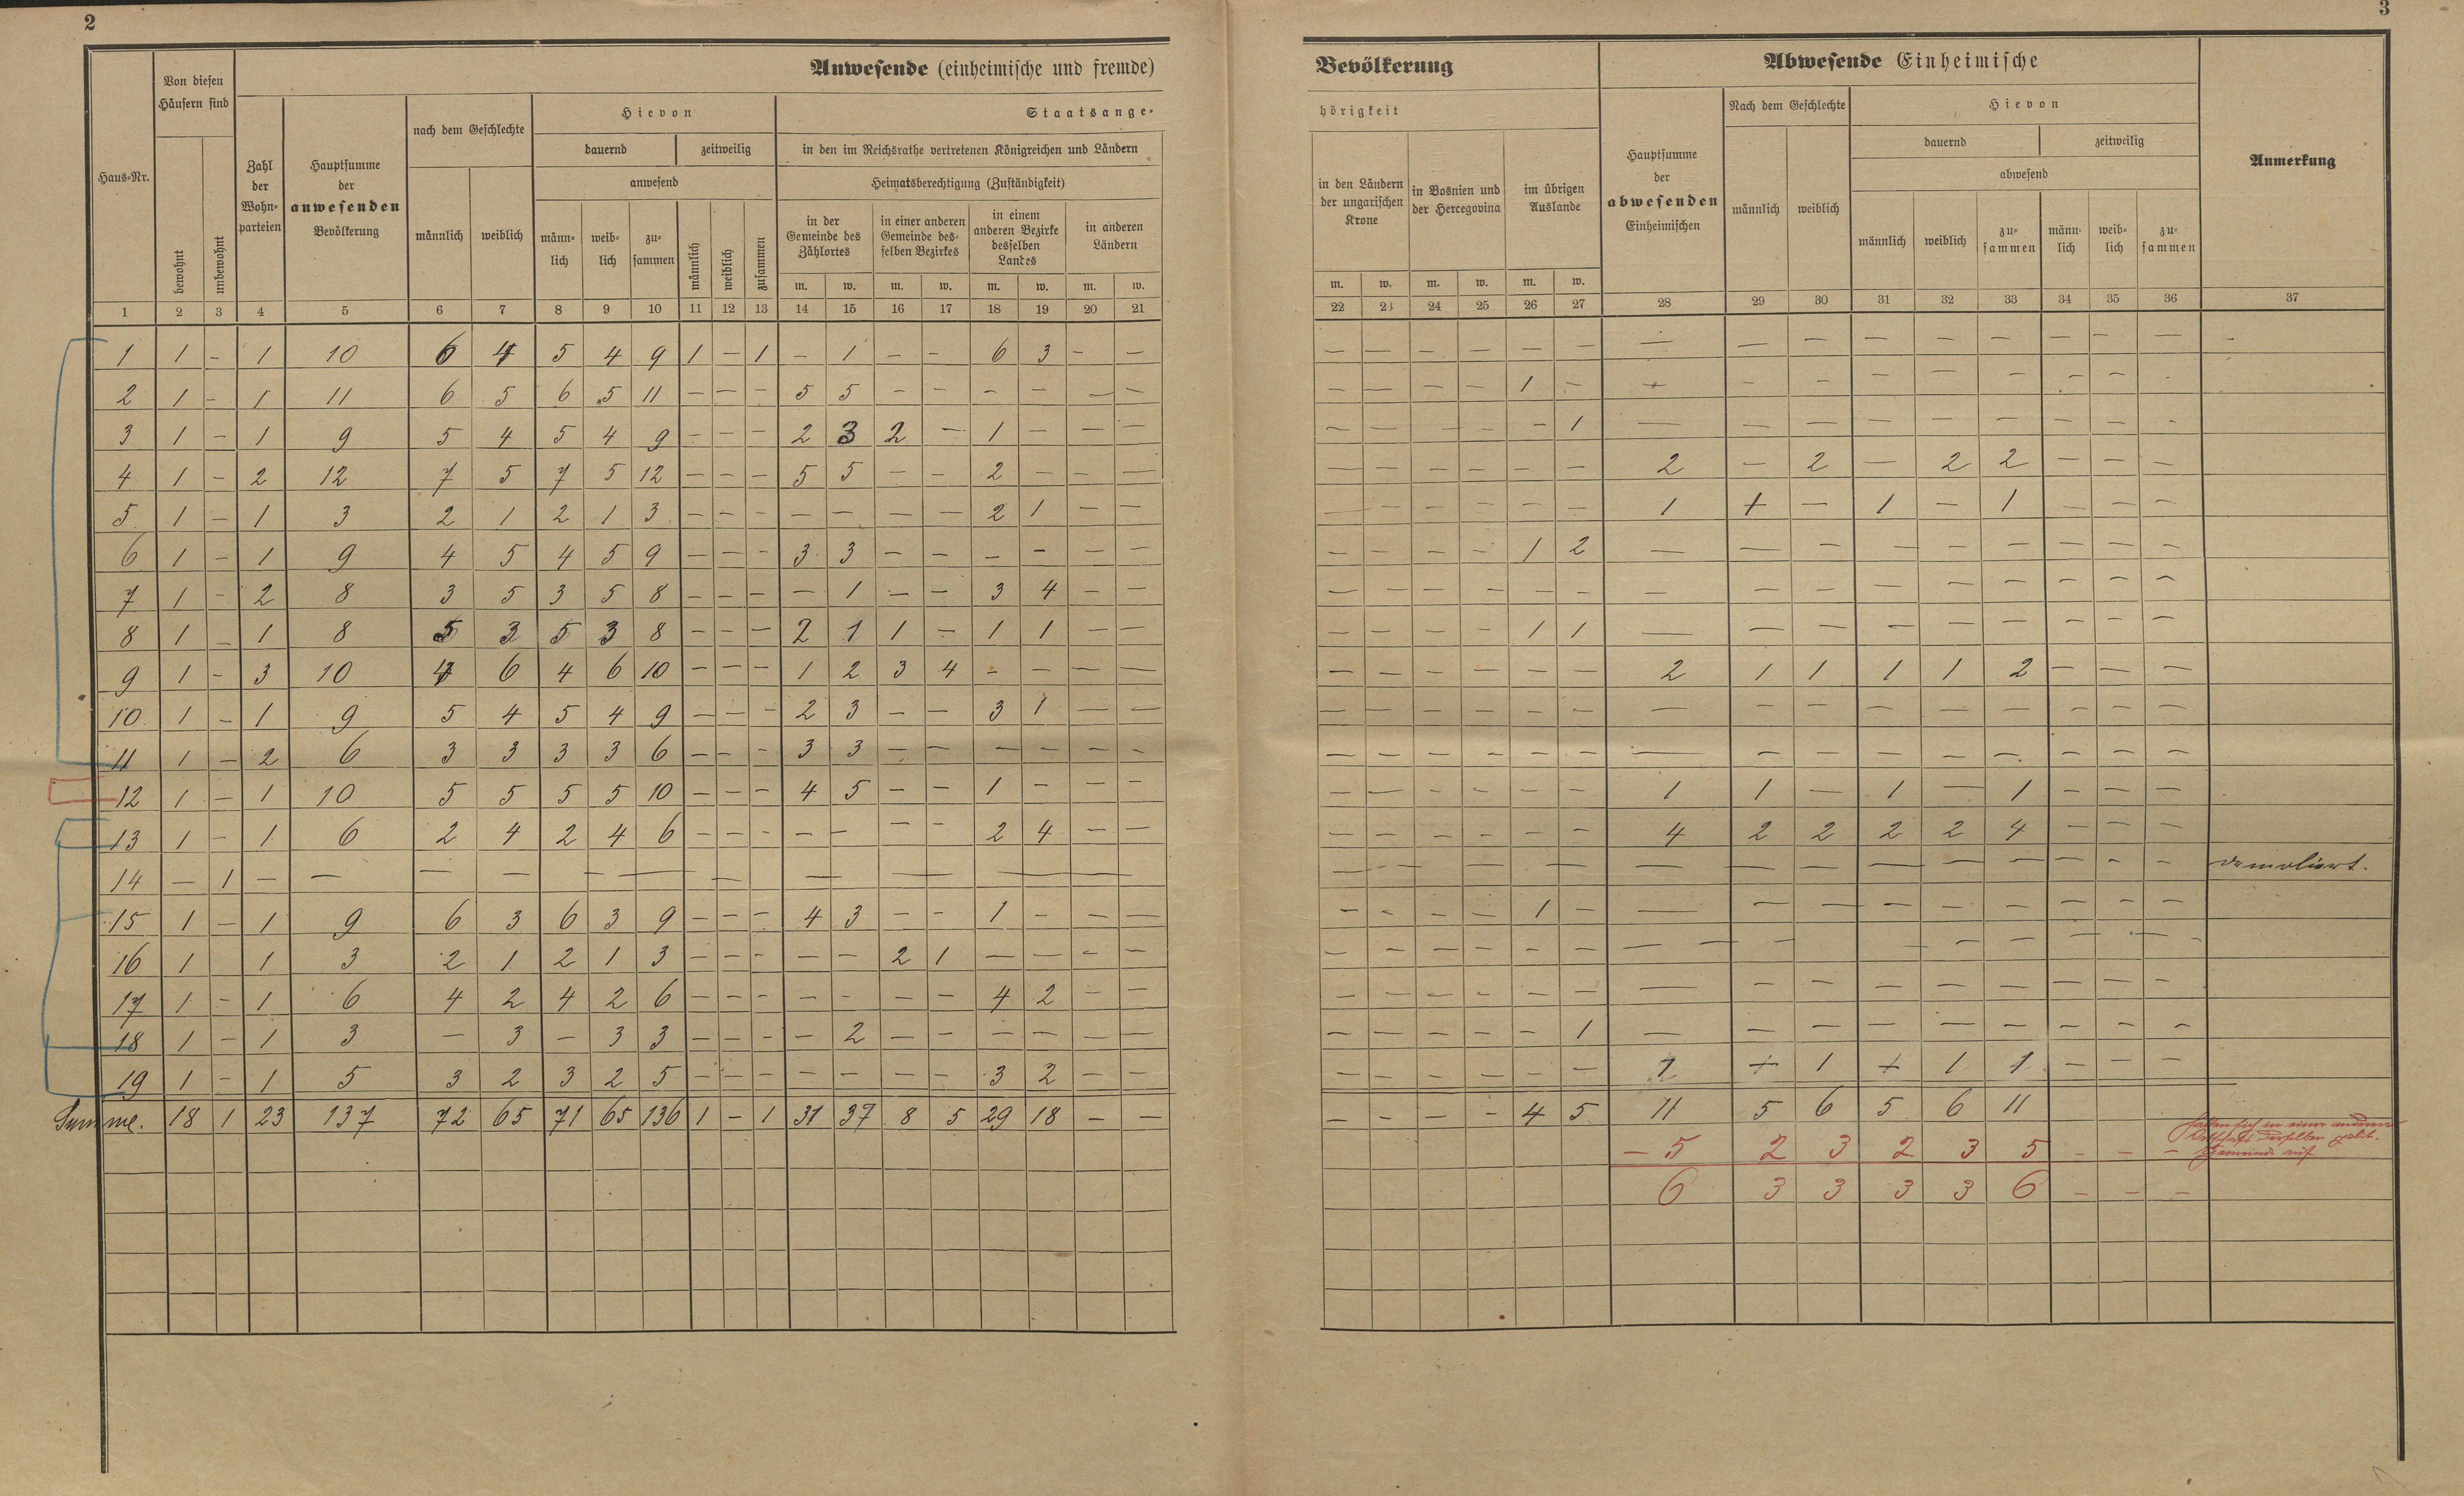 2
3
Anwesende (einheimische und fremde) Bevölkerung
Abwesende Einheimische
Haus-Nr.
Von diesen Häusern sind
bewohnt
unbewohnt
Zahl der Wohn-parteien
Hauptsumme der anwesenden Bevölkerung
nach dem Geschlechte
männlich
weiblich
Hievon
dauernd
zeitweilig
anwesend
männ-lich
weib-lich
zu-sammen
männlich
weiblich
zusammen
Staatsange-hörigkeit
in den im Reichsrathe vertretenen Königreichen und Ländern
Heimatsberechtigung (Zuständigkeit)
in der Gemeinde des Zählortes
in einer anderen Gemeinde des-selben Bezirkes
in einem anderen Bezirke desselben Landes
in anderen Ländern
in den Ländern der ungarischen Krone
in Bosnien und der Hercegovina
im übrigen Auslande
m. w. m. w. m. w. m. w.
m. w. m. w. m. w.
Hauptsumme der abwesenden Einheimischen
Nach dem Geschlechte
männlich
weiblich
Hievon
dauernd
zeitweilig
abwesend
männlich
weiblich
zu-sammen
männ-lich
weib-lich
zu-sammen
Anmerkung
1 2 3 4 5 6 7 8 9 10 11 12 13 14 15 16 17 18 19 20 21 22 23 24 25 26 27 28 29 30 31 32 33 34 35 36 37
1 1 – 1 10 6 4 5 4 9 1 – 1 – 1 – – 6 3 – – – – – – – – – – – – – – – – – –
2 1 – 1 11 6 5 6 5 11 – – – 5 5 – – – – – – – – – – 1 – – – – – – – – – –
3 1 – 1 9 5 4 5 4 9 – – – 2 3 2 – 1 – – – – – – – – 1 – – – – – – – – –
4 1 – 2 12 7 5 7 5 12 – – – 5 5 – – 2 – – – – – – – – – 2 – 2 – 2 2 – – –
5 1 – 1 3 2 1 2 1 3 – – – – – – – 2 1 – – – – – – – – 1 1 – 1 – 1 – – –
6 1 – 1 9 4 5 4 5 9 – – – 3 3 – – – – – – – – – – 1 2 – – – – – – – – –
7 1 – 2 8 3 5 3 5 8 – – – – 1 – – 3 4 – – – – – – – – – – – – – – – – –
8 1 – 1 8 5 3 5 3 8 – – – 2 1 1 – 1 1 – – – – – – 1 1 – – – – – – – – –
9 1 – 3 10 4 6 4 6 10 – – – 1 2 3 4 – – – – – – – – – – 2 1 1 1 1 2 – – –
10 1 – 1 9 5 4 5 4 9 – – – 2 3 – – 3 1 – – – – – – – – – – – – – – – – –
11 1 – 2 6 3 3 3 3 6 – – – 3 3 – – – – – – – – – – – – – – – – – – – – –
12 1 – 1 10 5 5 5 5 10 – – – 4 5 – – 1 – – – – – – – – – 1 1 – 1 – 1 – – –
13 1 – 1 6 2 4 2 4 6 – – – – – – – 2 4 – – – – – – – – 4 2 2 2 2 4 – – –
14 – 1 – – – – – – – – – – – – – – – – – – – – – – – – demoliert.
15 1 – 1 9 6 3 6 3 9 – – – 4 3 – – 1 – – – – – – – 1 – – – – – – – – – –
16 1 1 3 2 1 2 1 3 – – – – – 2 1 – – – – – – – – – – – – – – – – – – –
17 1 – 1 6 4 2 4 2 6 – – – – – – – 4 2 – – – – – – – – – – – – – – – – –
18 1 – 1 3 – 3 – 3 3 – – – – 2 – – – – – – – – – – – 1 – – – – – – – – –
19 1 – 1 5 3 2 3 2 5 – – – – – – – 3 2 – – – – – – – – 1 + 1 + 1 1 – – –
Summe. 18 1 23 137 72 65 71 65 136 1 – 1 31 37 8 5 29 18 – – – – – – 4 5 11 5 6 5 6 11
– 5 2 3 2 3 5 – – – halten sich in einer anderen
Ortschaft derselben polit.
Gemeinde auf
6 3 3 3 3 6 – – –